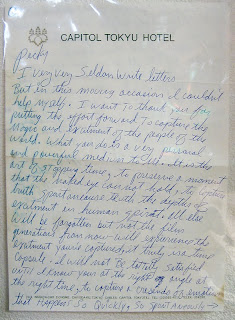 CAPITOL TOKYU HOTEL
I Very Very Seldom Write letters
But in this moving occasion I couldn't
help myself. I want to thank you for
putting the effort forward to capture the
Magic and excitement of the people of the
world. What you do is a very personal
and powerful medium to itself. It is the
art of stopping time, to preserve a moment
that the naked eye can not hold, to capture
truth spontaneous truth, the depths of
excitment in human spirit. All else
will be forgotten but not the film
generations from now will experience the
excitment you've captured it truly is a time
Capsule. I will not be totally satisfied
until I know your at the right angle at
the right time, to capture a of emotion
that Happens So Quickly, So Spontaneously